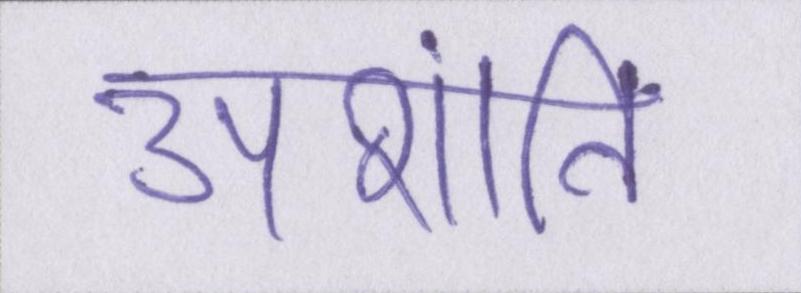 उपशांति